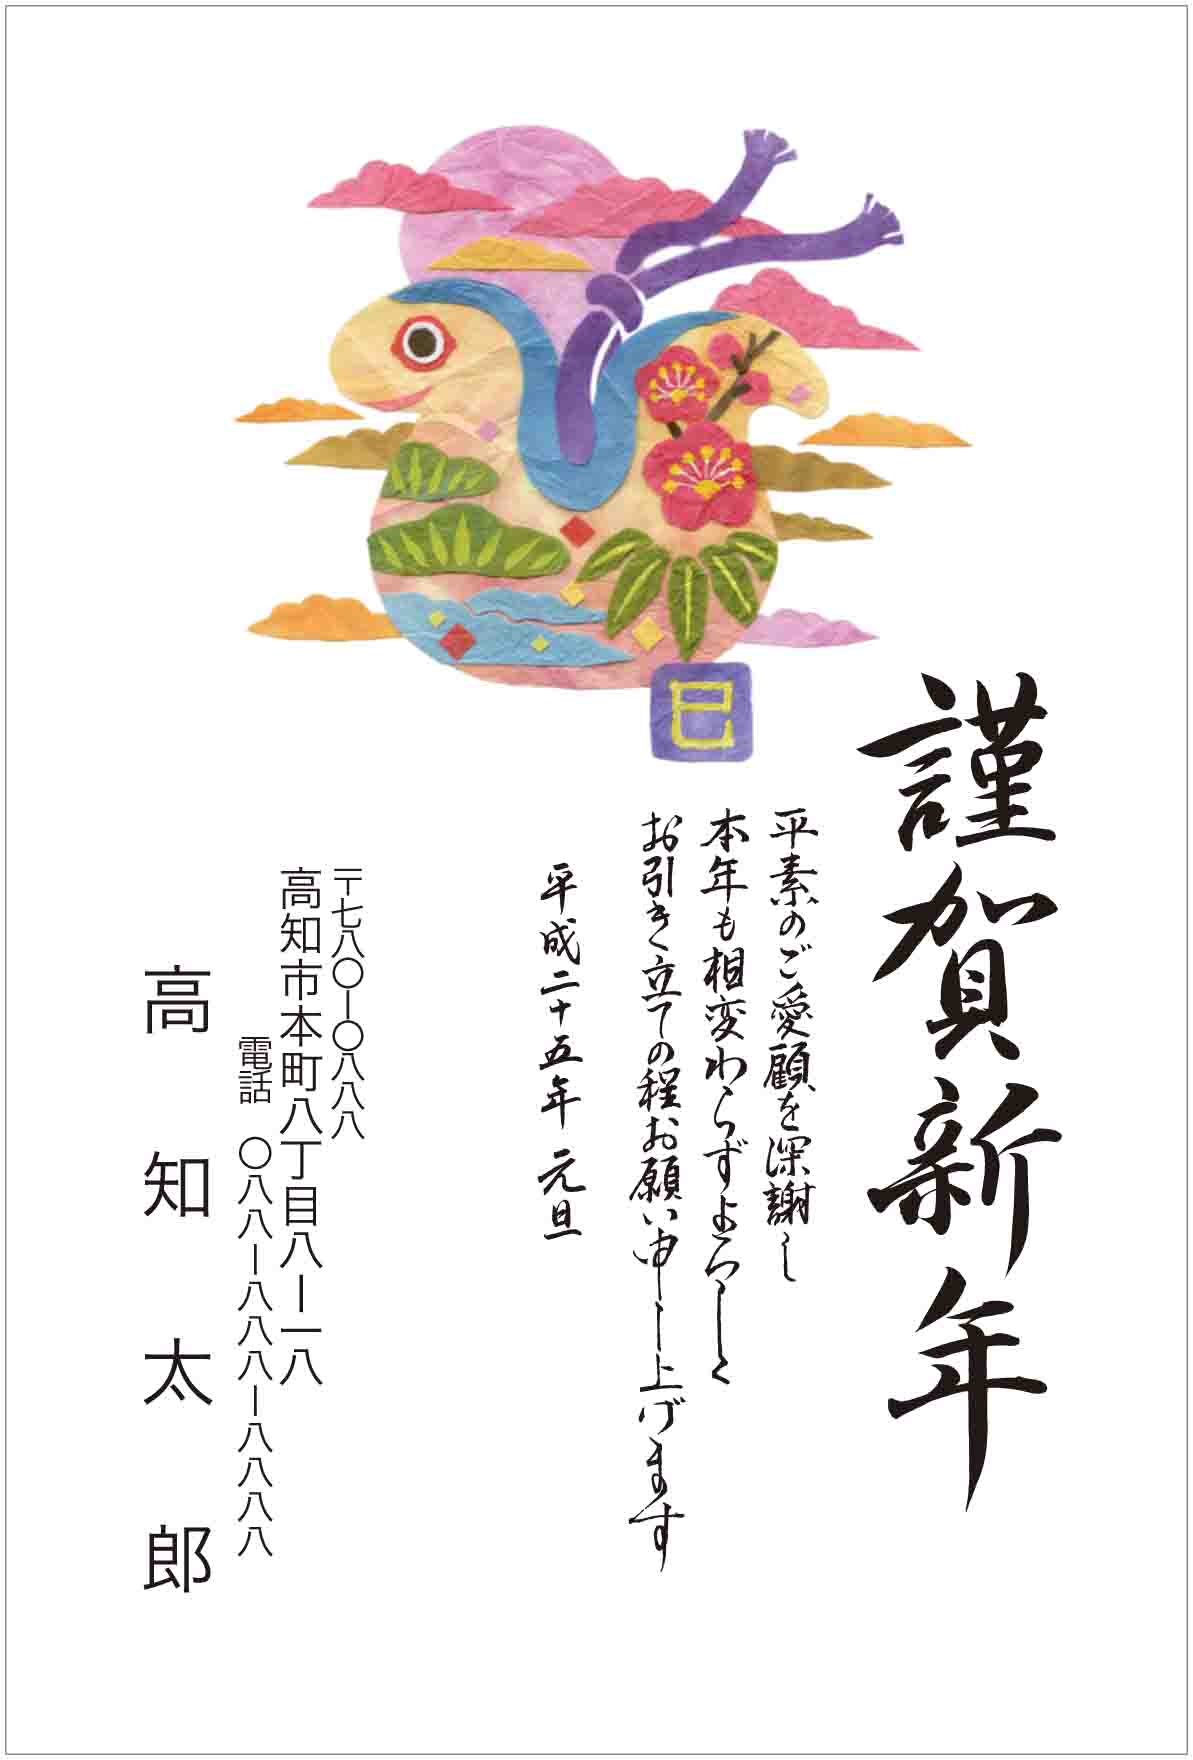 巳
謹賀新年
平素のご愛顧を深謝し
本年も相変わらずよろしく
お引き立ての程お願い申し上げます
平成二十五年 元旦
〒七八〇ー〇八八八
高知市本町八丁目八ー一八
電話 〇八八ー八八八ー八八八八
高知太郎